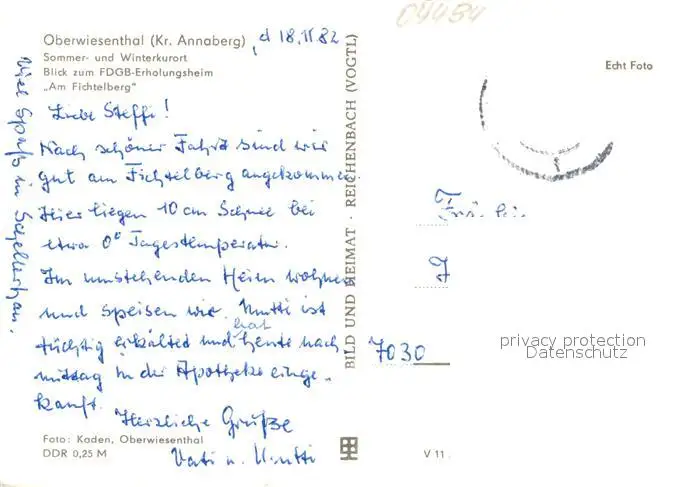 Oberwiesenthal (Kr. Annaberg)
Sommer- und Winterkurort
Blick zum FDGB-Erholungsheim
„Am Fichtelberg"
d 18.11.82
Liebe Steffi!
Nach schöner Fahrt sind wir
gut am Fichtelberg angekommen
Hier liegen 10 cm Schnee bei
etwa 0° Tagestemperatur.
Im umstehenden Heim wohnen
und speisen wir. Mutti ist
tüchtig erkältet und hat heute nach
mittag in der Apotheke einge-
kauft.
Herzliche Grüße
Vati u. Mutti
Viel Spaß in Schellerhau.
Foto: Kaden, Oberwiesenthal
DDR 0,25 M
BILD UND HEIMAT · REICHENBACH (VOGTL)
V 11
Echt Foto
7030
privacy protection
Datenschutz